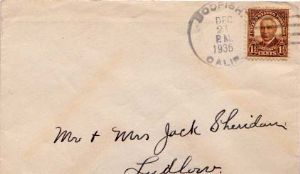 BODFISH
DEC
21
P.M.
1935
CALIF.
1½ CENTS 1½
Mr + Mrs Jack Sheridan
Ludlow